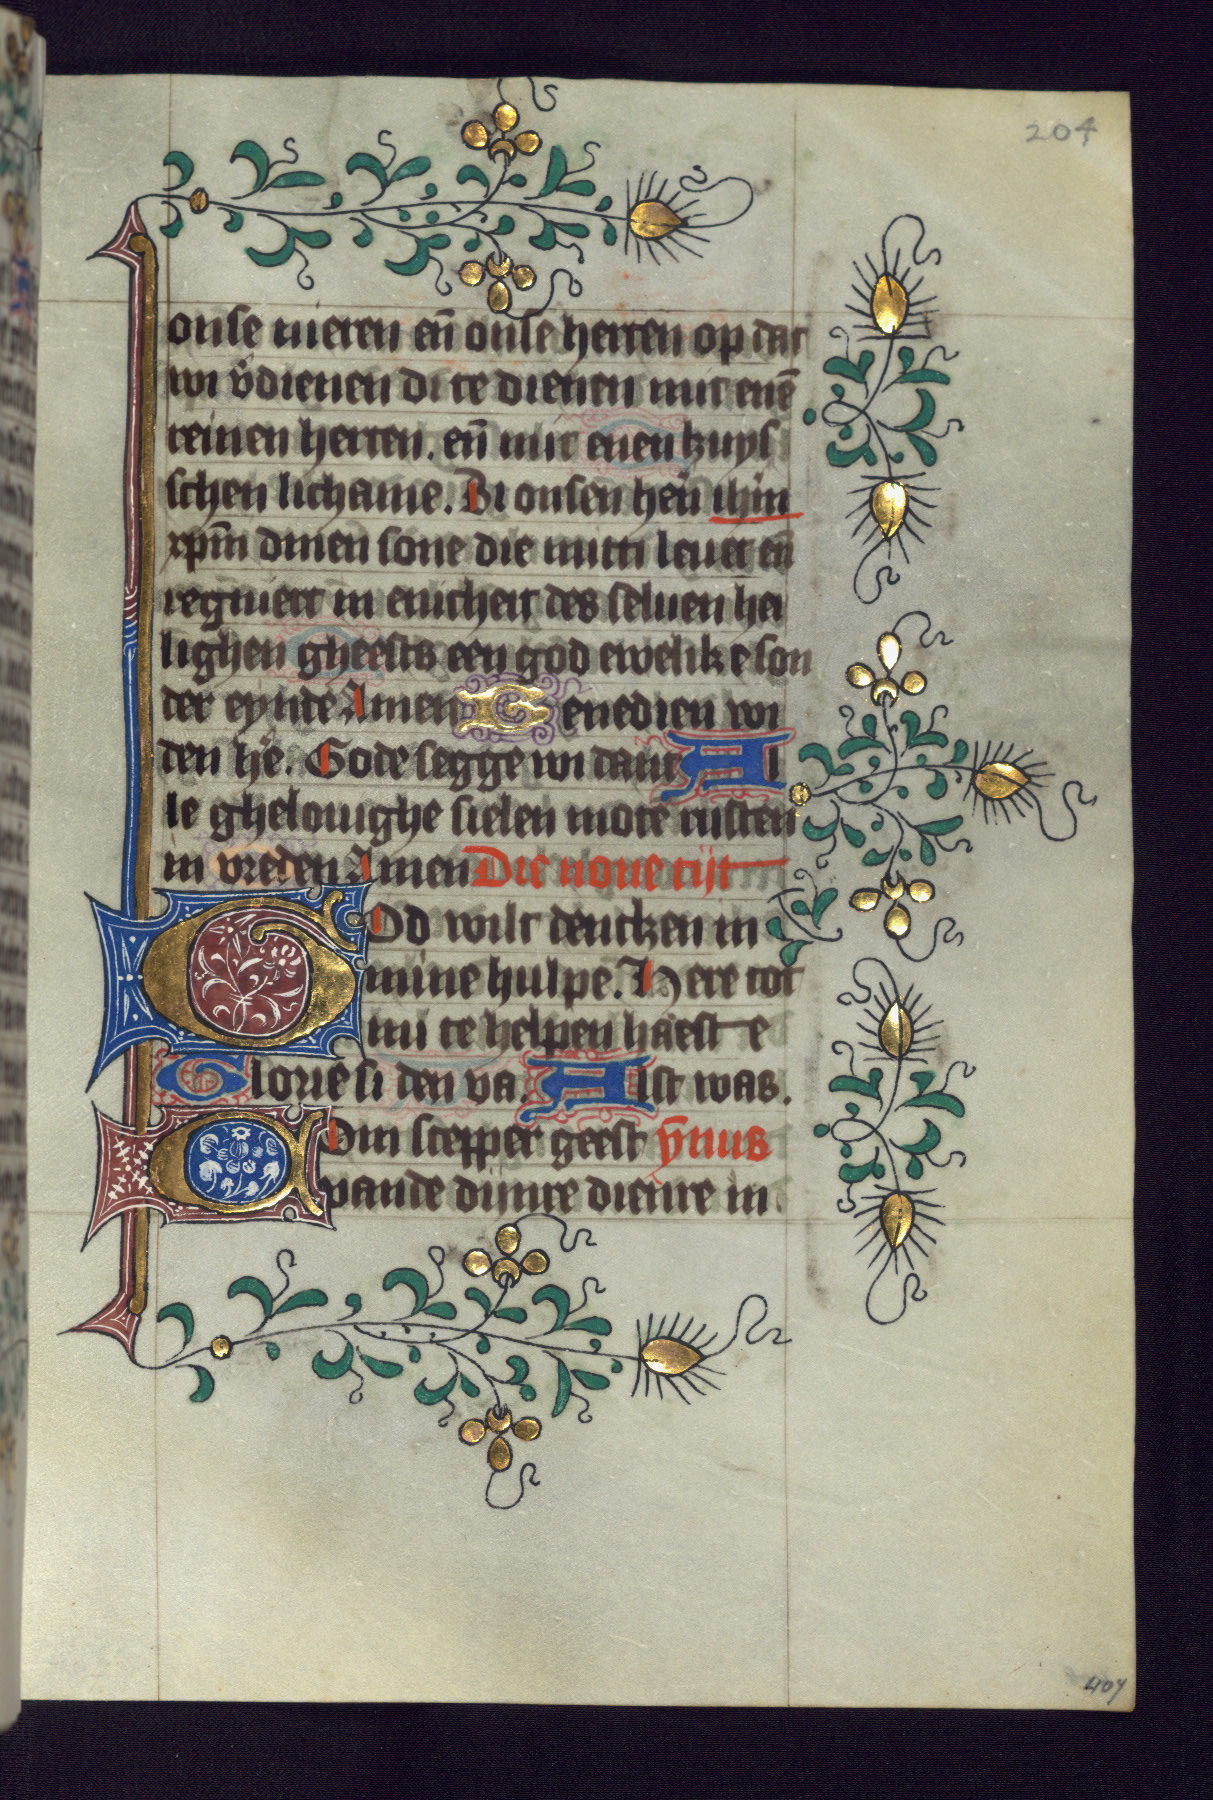 204
onse nieren eñ onse herten op dat
wi v̄dienen di te dienen mit enē
reinen herten. eñ mit enen kuys
schen lichame. Bi onsen heñ ihm̄
xpm̄ dinen sone die mitti leuet eñ
regniert in enicheit des seluen hei
lighen gheests een god ewelike son
der eynde Amen Genedien wi
den hē. Gode segge wi danc Al
le ghelouighe sielen mote rusten
in vreden Amen Die none tijt
God wilt dencken in
mine hulpe. Here tot
mi te helpen haeste
Glorie si den va. Alst was.
Om scepper geest ȳnus
vande dijnre dienre in
407